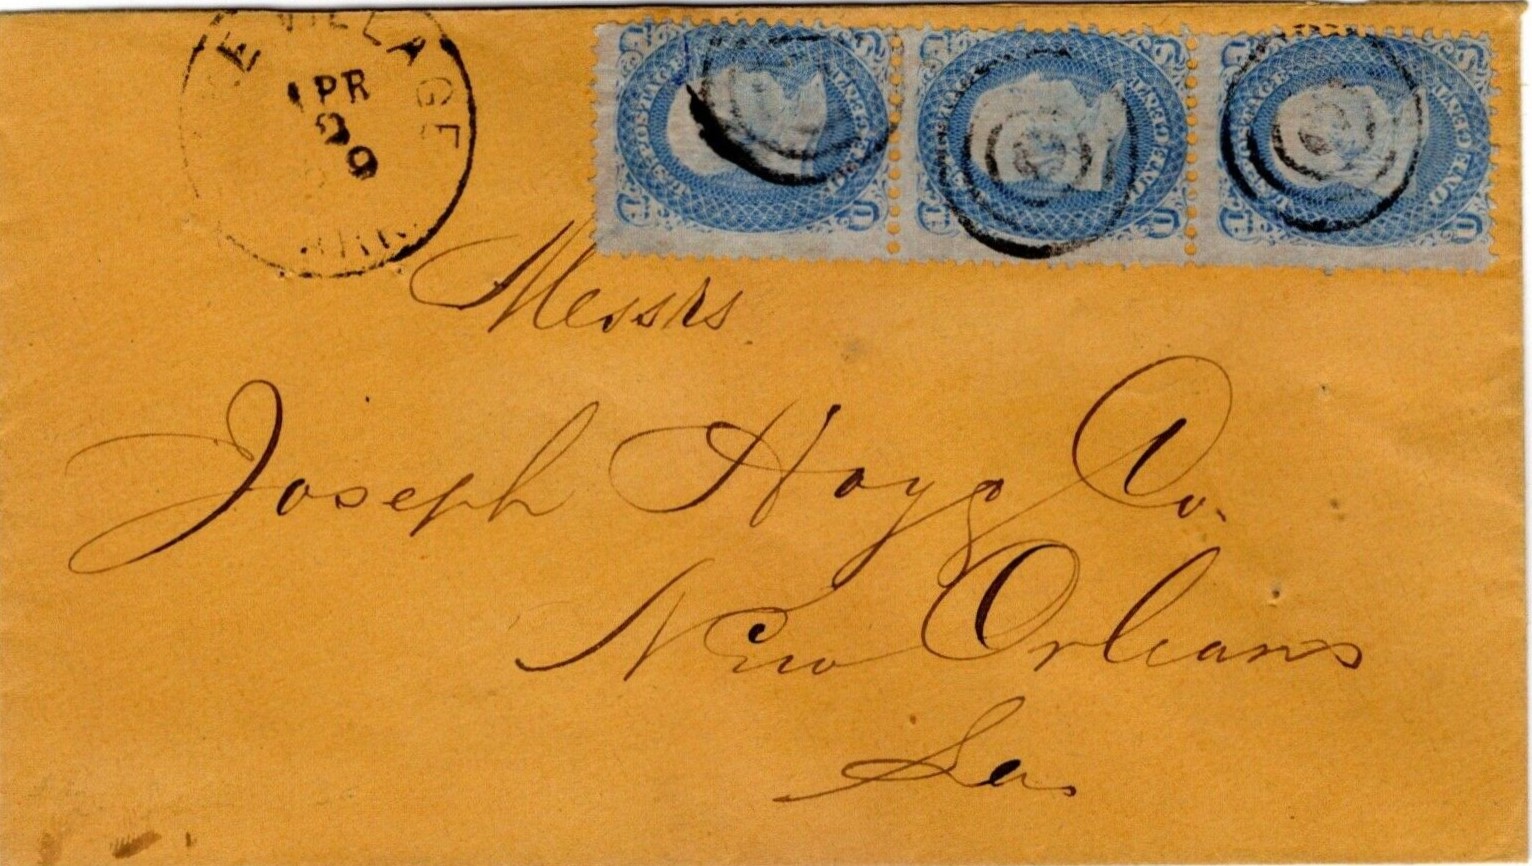 VILLAGE
APR
29
ARK
U.S. POSTAGE
ONE CENT
U.S. POSTAGE
ONE CENT
U.S. POSTAGE
ONE CENT
Messrs
Joseph Hoyg Co.
New Orleans
La.